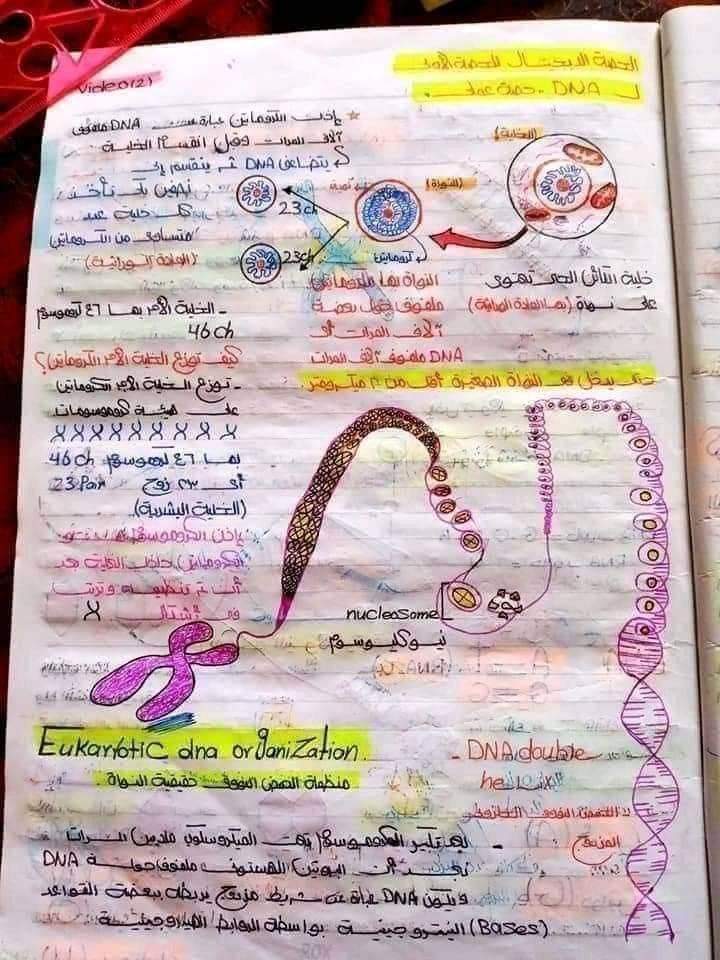 Video(2)
الحصة الاستهلال للحصة الأولى
لـ DNA - حصة عملي
★ إذن الكروماتين عبارة عن DNA ملفوف
آلاف المرات وقبل انقسام الخلية
يتضاعف DNA ثم ينقسم إلى
نصفين بل تأخذ
كل خلية عدد
متساوي من الكروماتين
(المادة الوراثية)
23ch
23ch
نوية
(النواة)
كروماتين
(الخلية)
خلية الكائن الحي تحتوي
على نواة (بها المادة الوراثية)
النواة بها الكروماتين
ملفوف حول بعضه
آلاف المرات أي
DNA ملفوف آلاف المرات
حتى يدخل في النواة الصغيرة أقل من ٢ ميكرومتر
- الخلية الأم بها ٤٦ كروموسوم
46 ch
كيف توزع الخلية الأم الكروماتين؟
- توزع الخلية الأم الكروماتين
على هيئة كروموسومات
X X X X X X X X X
بها ٤٦ كروموسوم 46 Ch
أي ٢٣ زوج 23 Pair
(الخلية البشرية).
إذن الكروموسوم هو
الكروماتين داخل الخلية بعد
أن تم تنظيمه وترتب
في أشكال X
nucleosome
نيوكليوسوم
Eukaryotic dna organization.
منظمة الحمض النووي حقيقية النواة.
- DNA double
helix
الحمض النووي الحلزوني
المزدوج:
- بعد تكبير الكروموسوم تحت الميكروسكوب ملايين المرات
نجد أن البروتين الهستوني ملفوف حوله DNA
ويكون DNA عبارة عن شريط مزدوج يربطه ببعضه القواعد
(Bases) النيتروجينية بواسطة الروابط الهيدروجينية